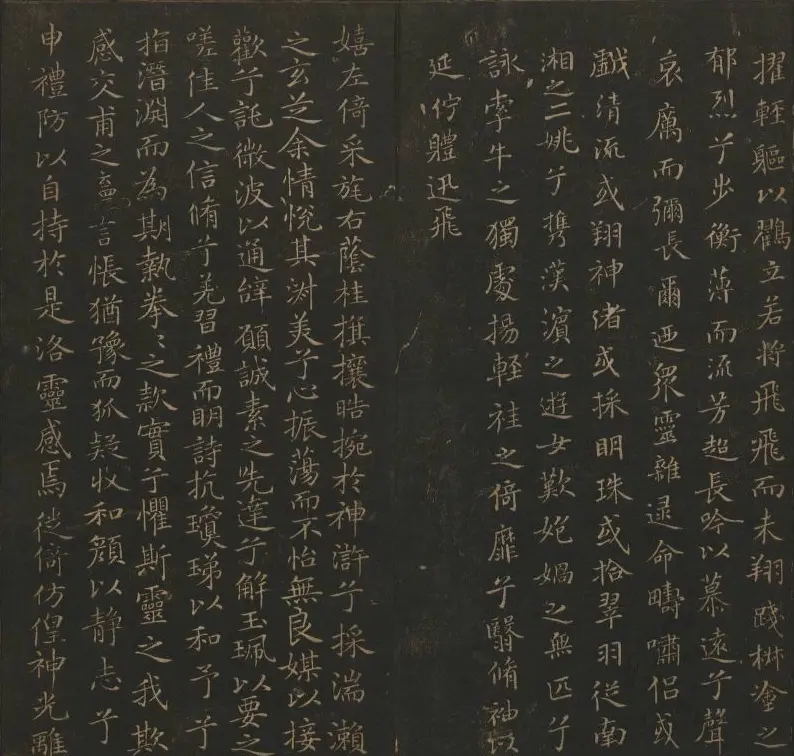 擢輕軀以鸛立若将飛飛而未翔踐椒塗之
郁烈兮步衡薄而流芳超長吟以慕遠兮聲
哀厲而彌長爾迺衆靈雜遝命疇嘯侶或
戲清流或翔神渚或採明珠或拾翠羽從南
湘之二姚兮携漢濱之遊女歎匏媧之無匹兮
詠牽牛之獨處揚輕袿之倚靡兮翳脩袖以
延佇體迅飛
嬉左倚采旄右蔭桂旗攘皓捥於神滸兮採湍瀨
之玄芝余情悅其淑美兮心振蕩而不怡無良媒以接
歡兮託微波以通辭願誠素之先達兮解玉珮以要之
嗟佳人之信脩兮羌習禮而明詩抗瓊珶以和予兮
指潛淵而為期執拳〻之款實兮懼斯靈之我欺
感交甫之棄言悵猶豫而狐疑收和顏以静志兮
申禮防以自持於是洛靈感焉徙倚仿偟神光離